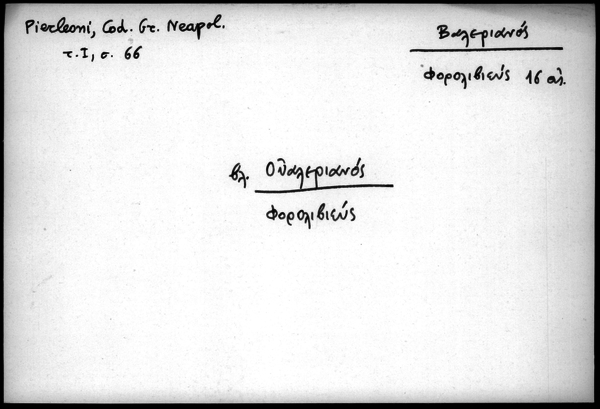 Pierleoni, Cod. Gr. Neapol.
τ. I, σ. 66
Βαλεριανός
Φορολιβιεύς 16 αἰ.
βλ. Οὐαλεριανός
Φορολιβιεύς